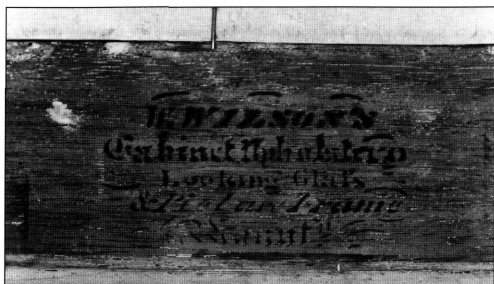 WILSON'S
Cabinet Upholstery
Looking Glass
& Picture Frame